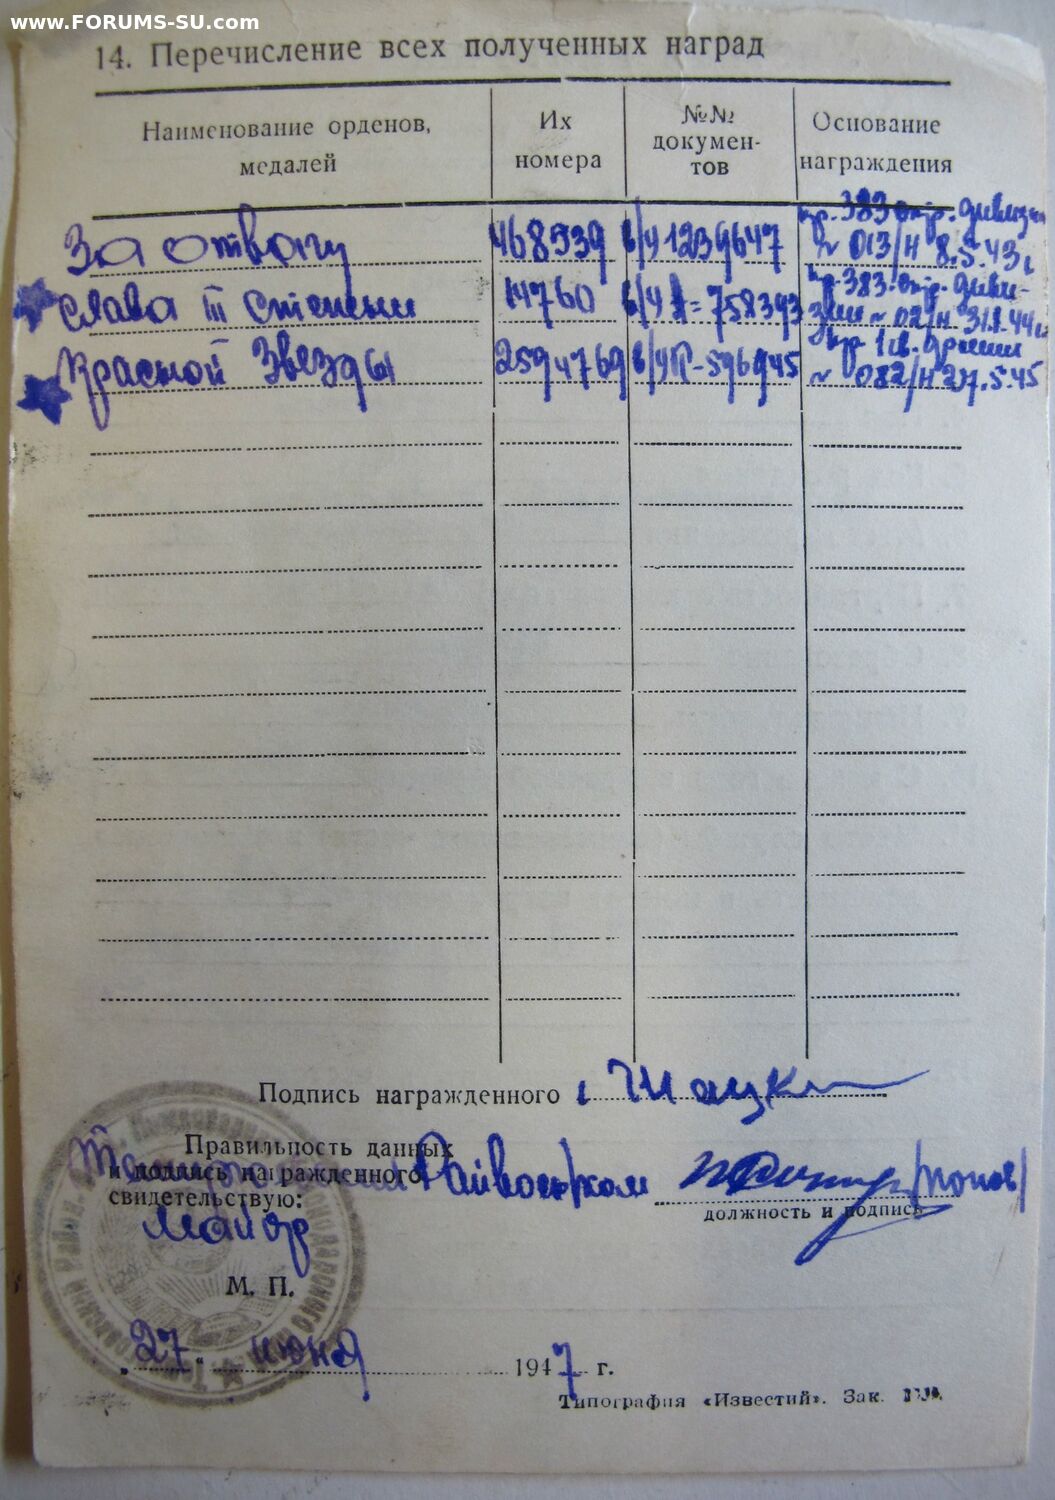 www.FORUMS-SU.com
14. Перечисление всех полученных наград
Наименование орденов, медалей
Их номера
№№ докумен-
тов
Основание награждения
За отвагу 468939 в/у 1239647 пр. 383 стр. дивизии
№ 013/н 8.5.43г
Слава III степени 14760 в/у А=758393 пр. 383 стр. диви-
зии № 02/н 31.1.44г
Красной Звезды 2594769 в/у 596945 пр 1 гв. армии
№ 082/н 27.5.45
Подпись награжденного
Правильность данных
и подпись награжденного Райвоенком /Попов/
свидетельствую:
должность и подпись
Майор
М. П.
„27“ июня 1947 г.
Типография «Известий». Зак.